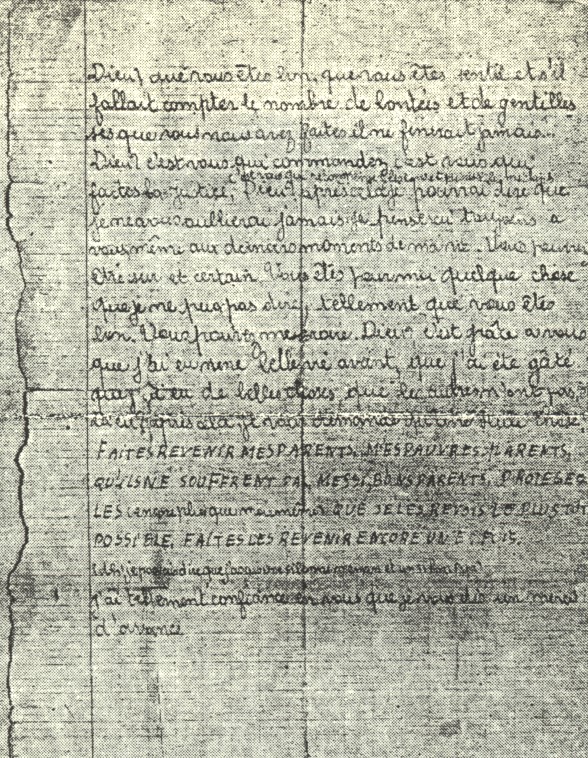 Dieu? que vous êtes bon, que vous êtes gentil et s'il
fallait compter le nombre de bontées et de gentilles
ses que vous nous avez faites il ne finirait jamais...
Dieu? c'est vous qui commandez c'est vous qui
faites la justice, Dieu? après cela je pourrai dire que
c'est vous qui récompensez les bons et punissez les méchants
je ne vous oublierai jamais. Je penserai toujours a
vous même aux derniers moments de ma vie. Vous pouvez
être sur et certain. Vous êtes pour moi quelque chose
que je ne puis pas dire, tellement que vous êtes
bon. Vous pouvez me croire. Dieu? c'est grâte a vous
que j'ai eu une belle vie avant, que j'ai été gâté
que j'ai eu de belles choses, que les autres n'ont pas.
eu? après cela je vous demande qu'une seule chose:
FAITES REVENIR MES PARENTS, MES PAUVRES PARENTS,
QU'ILS NE SOUFFERENT PAS MES SI BONS PARENTS, PROTEGEZ
LES (encore plus que moi même) QUE JE LES REVOIS LE PLUS TOT
POSSIBLE, FAITES LES REVENIR ENCORE UNE FOIS.
(Ah! je pouvais dire que j'avais une si bonne maman et un si bon papa!
j'ai tellement confiance en vous que je vous dis un merci
d'avance